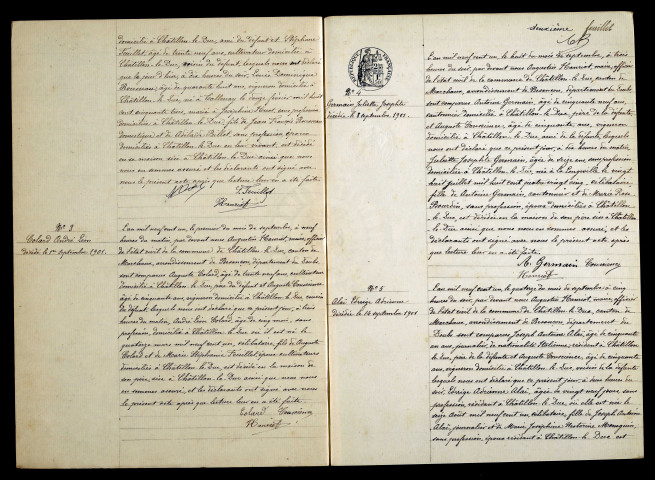 domicilié à Châtillon le Duc, ami du défunt et Stéphane
Feuillet, âgé de trente neuf ans, cultivateur domicilié à
Châtillon le Duc, voisin du défunt, lesquels nous ont déclaré
que ce jour d'hier, à dix heures du soir,
âgé de quarante huit ans, vigneron domicilié à
Châtillon le Duc, né à
cinquante
domestique et de
domiciliés à Châtillon le Duc, est décédé
en sa maison sise à Châtillon le Duc ainsi que nous
nous en sommes assuré et les déclarants ont signé avec
nous le présent acte après que lecture leur en a été faite
Feuillet
Henriot
N° 3
Colard André Léon
décédé le 1er septembre 1901.
L'an mil neuf cent un, le premier du mois de septembre, à neuf
heures du matin, par devant nous Augustin Henriot maire, officier
de l'état civil de la commune de Châtillon le Duc, canton de
Marchaux, arrondissement de Besançon, département du Doubs
sont comparus Auguste Colard, âgé de trente neuf ans, cultivateur
domicilié à Châtillon le Duc, père du défunt et Auguste
âgé de cinquante ans, vigneron domicilié à Châtillon le Duc, voisin
du défunt, lesquels nous ont déclaré que ce présent jour, à trois
heures du matin, André Léon Colard, âgé de cinq mois, sans
profession, domicilié à Châtillon le Duc où il est né le
quatorze mars mil neuf cent un, célibataire, fils de Auguste
Colard et de Marie Stéphanie Feuillet épouse cultivateurs
domiciliés à Châtillon le Duc, est décédé en la maison de
son père, sise à Châtillon le Duc ainsi que nous nous
en sommes assuré et les déclarants ont signé avec nous
le présent acte après que lecture leur en a été faite
Colard
Henriot
deuxième feuillet
N° 4
Germain Juliette Josèphe
décédée le 8 septembre 1901.
L'an mil neuf cent un le huit du mois de septembre, à trois
heures du soir, par devant nous Augustin Henriot maire, officier
de l'état civil de la commune de Châtillon le Duc, canton de
Marchaux, arrondissement de Besançon, département du Doubs
sont comparus Antoine Germain, âgé de cinquante neuf ans,
cantonnier domicilié à Châtillon le Duc, père de la défunte,
et Auguste âgé de cinquante ans, vigneron,
domicilié à Châtillon le Duc, ami de la défunte, lesquels
nous ont déclaré que ce présent jour, à dix heures du matin
Juliette Josèphe Germain, âgée de seize ans, sans profession
domiciliée à Châtillon le Duc, née à le vingt
huit juillet mil huit cent quatre vingt cinq, célibataire,
fille de Antoine Germain, cantonnier et de Marie
sans profession, épouse domiciliés à Châtillon
le Duc, est décédée en la maison de son père sise à Châtillon
le Duc ainsi que nous nous en sommes assuré, et les
déclarants ont signé avec nous le présent acte après
que lecture leur en a été faite.
A. Germain
Henriot
N° 5
Alaï Edwige Adrienne
décédée le 14 septembre 1901
L'an mil neuf cent un, le quatorze du mois de septembre à cinq
heures du soir, par devant nous Augustin Henriot maire, officier
de l'état civil de la commune de Châtillon le Duc, canton de
Marchaux, arrondissement de Besançon, département du
Doubs sont comparus, Joseph Antoine Alaï, âgé de cinquante
ans, journalier, de nationalité Italienne, résidant à Châtillon
le Duc, père de la défunte et Auguste âgé de cinquante
ans, vigneron domicilié à Châtillon le Duc, voisin de la défunte
lesquels nous ont déclaré que ce présent jour, à deux heures du
soir, Edwige Adrienne Alaï, âgée de vingt neuf jours, sans
profession, résidant à Châtillon le Duc, où elle est née le
seize août mil neuf cent un célibataire, fille de Joseph Antoine
Alaï, journalier et de Marie Joséphine
sans profession, épouse résidant à Châtillon le Duc est